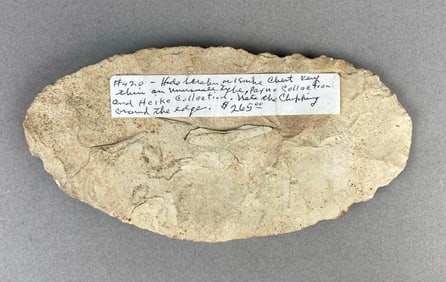 #420 - Hide Scraper Chert Very
thin an unusual type, Payne Collection
and Heiko Collection. Note the Chipping
around the edge. $265.00